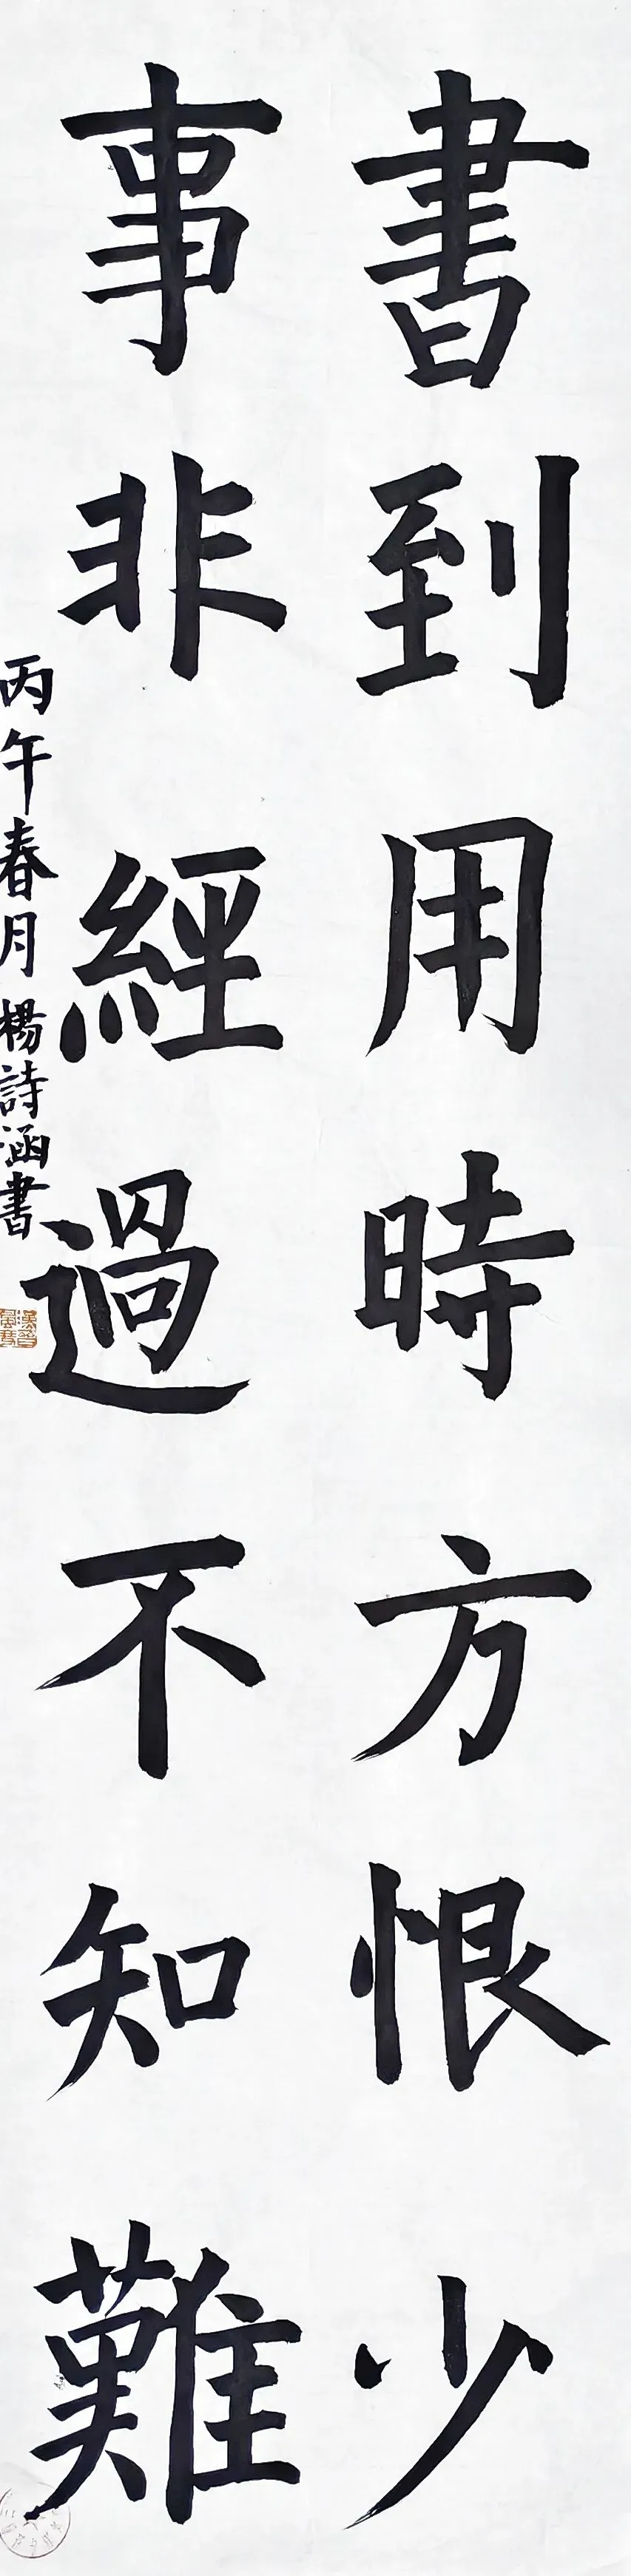 書到用時方恨少
事非經過不知難
丙午春月楊詩涵書